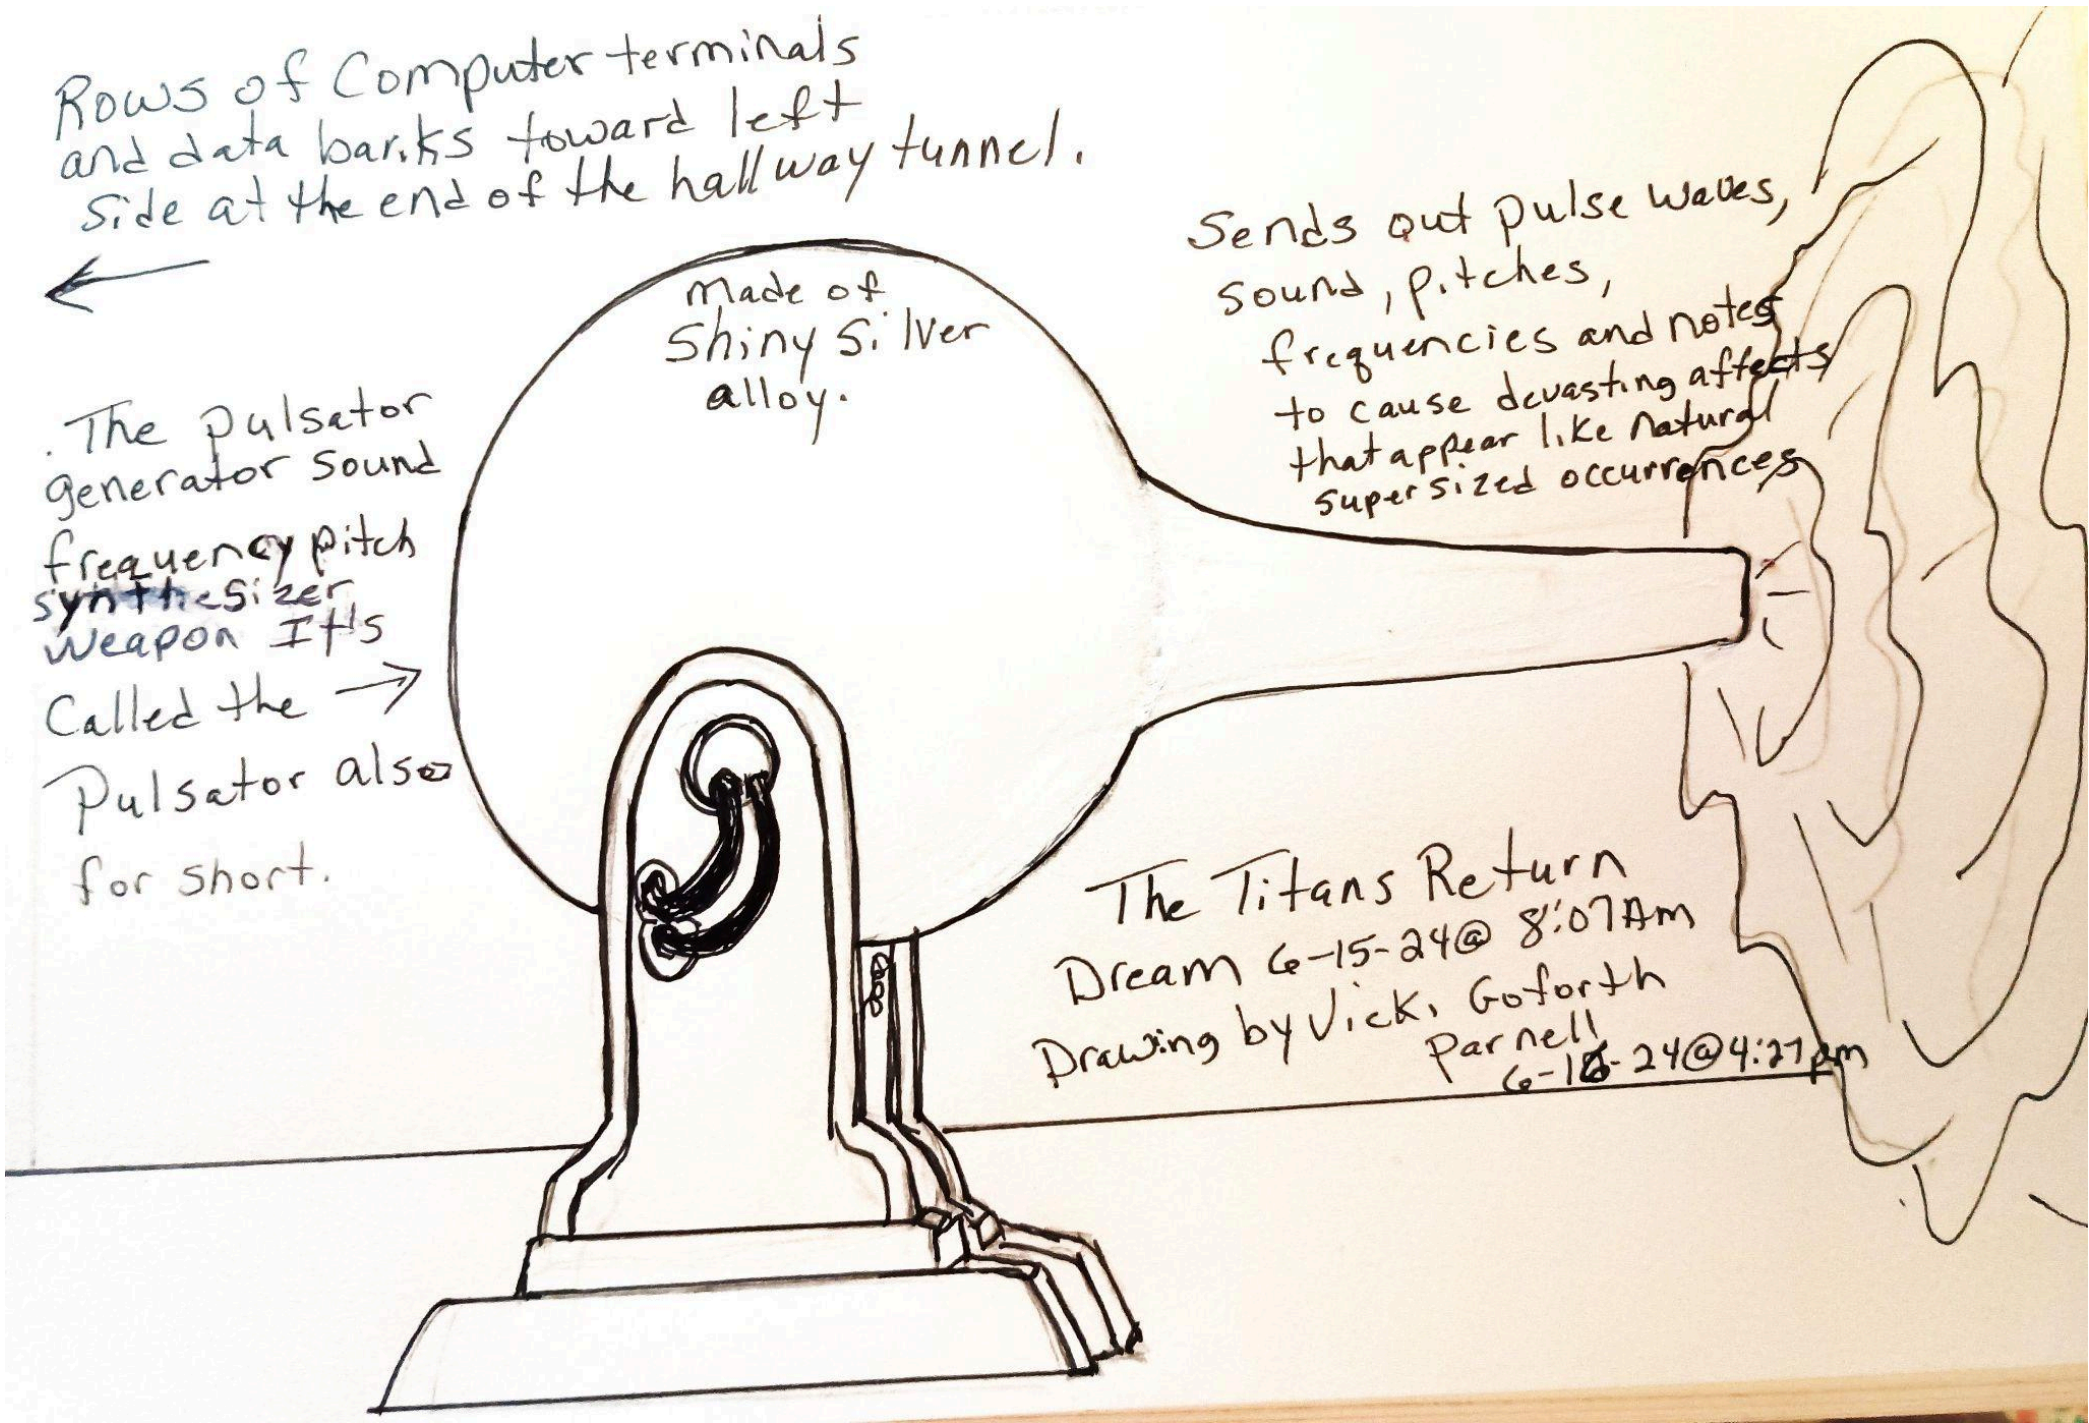 Rows of Computer terminals
and data banks toward left
side at the end of the hallway tunnel.
made of
Shiny Silver
alloy.
Sends out pulse waves,
sound, pitches,
frequencies and notes
to cause devasting affects
that appear like natural
supersized occurrences
. The pulsator
generator sound
frequency pitch
synthesizer
weapon It's
Called the
Pulsator also
for short.
The Titans Return
Dream 6-15-24@ 8:07AM
Drawing by Vicki Goforth
Parnell
6-16-24@4:27pm